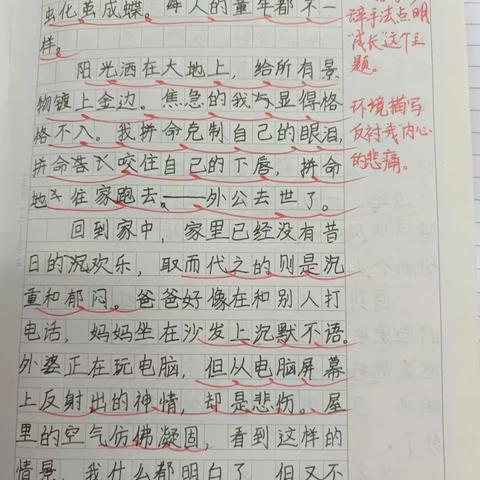 虫化茧成蝶。每人的童年都不一
样。
阳光洒在大地上，给所有景
物镀上金边。焦急的我与显得格
格不入。我拼命克制自己的眼泪，
拼命咬住自己的下唇，拼命
地往家跑去。——外公去世了。
回到家中，家里已经没有昔
日的欢乐，取而代之的则是沉
重和郁闷。爸爸好像在和别人打
电话，妈妈坐在沙发上沉默不语。
外婆正在玩电脑，但从电脑屏幕
上反射出的神情，却是悲伤。屋
里的空气仿佛凝固，看到这样的
情景，我什么都明白了，但又不
辞手法点明
"成长"这个主
题。
环境描写
反衬我内心
的悲痛。